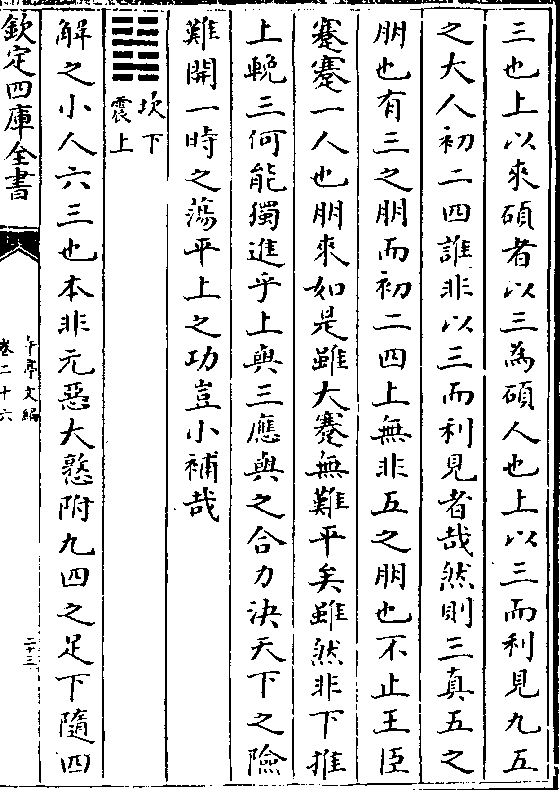 三也上以來碩者以三為碩人也上以三而利見九五
之大人初二四誰非以三而利見者哉然則三真五之
朋也有三之朋而初二四上無非五之朋也不止王臣
蹇蹇一人也朋來如是雖大蹇無難平矣雖然非下推
上輓三何能獨進乎上與三應與之合力決天下之險
難開一時之蕩平上之功豈小補哉
坎下
震上
解之小人六三也本非元惡大憝附九四之足下隨四
欽定四庫全書
午亭文編
卷二十六
二十三